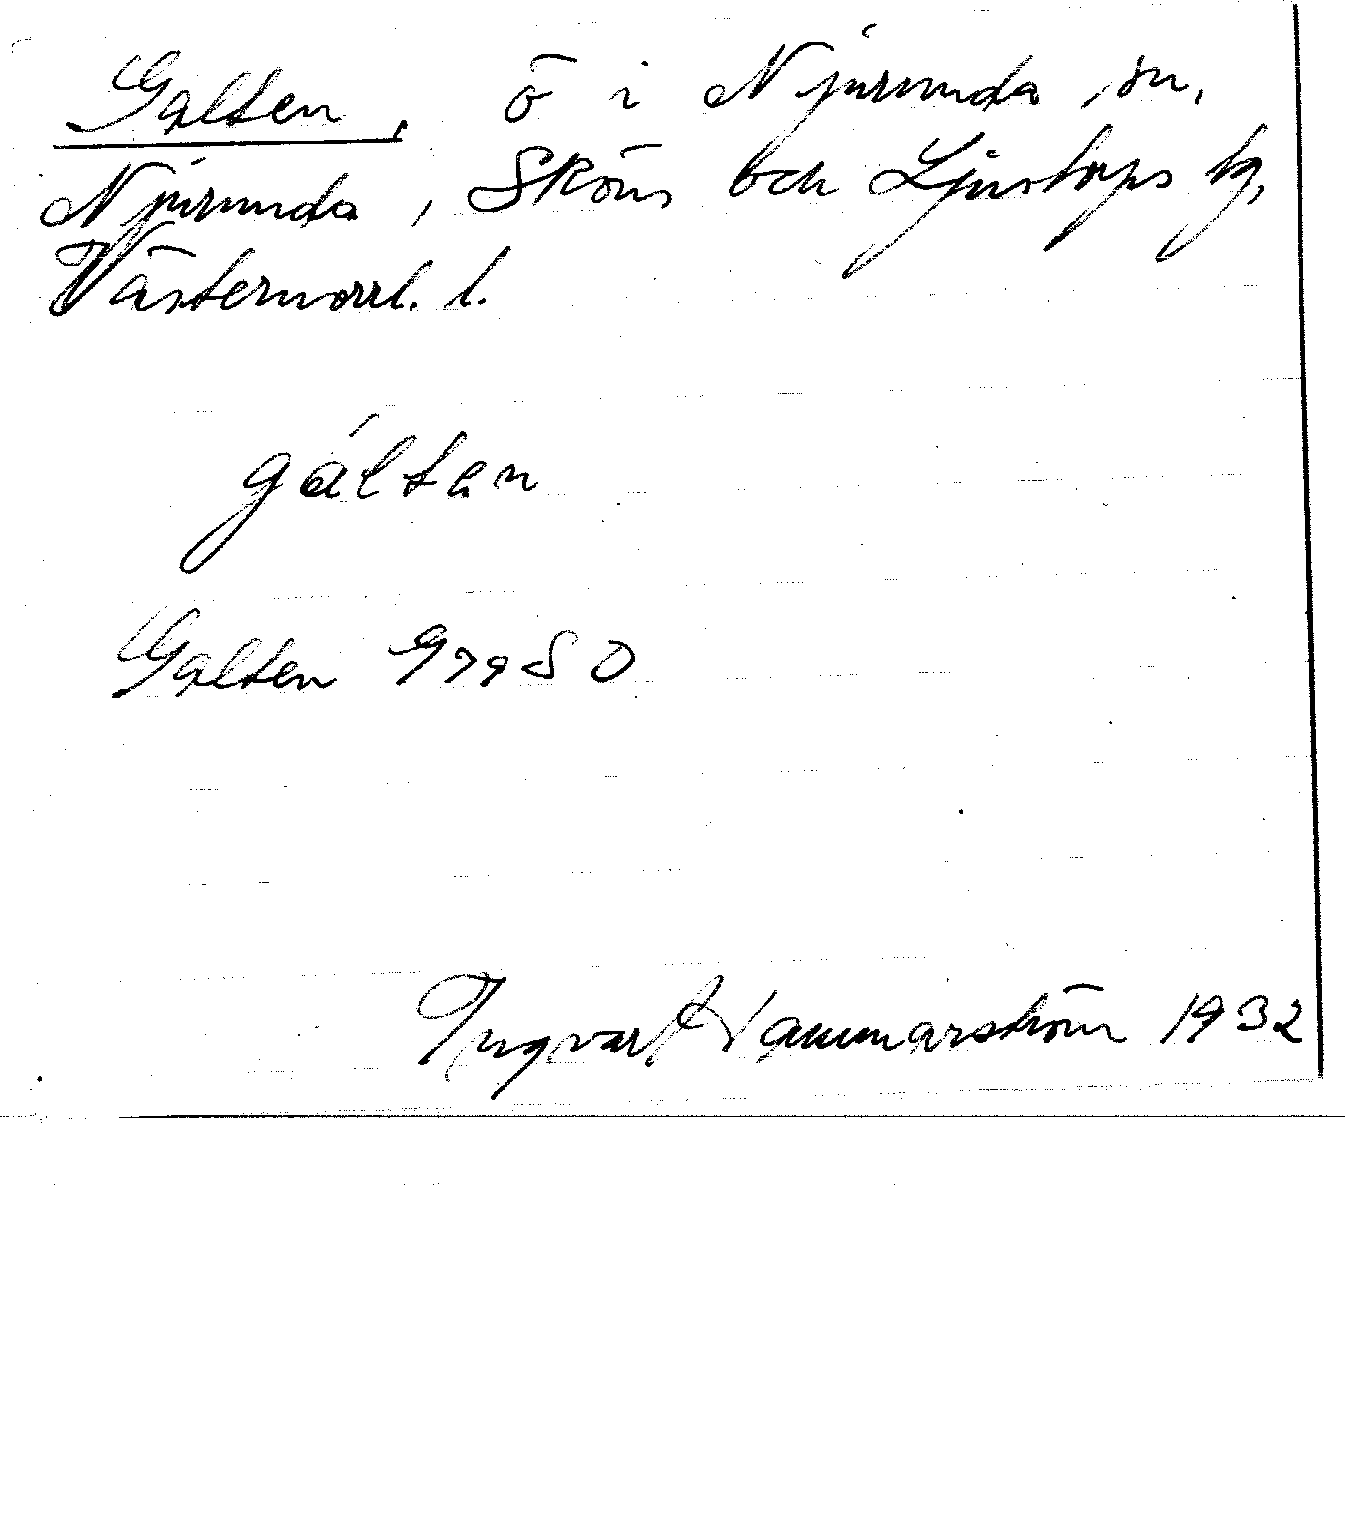 Galten, ö i Njurunda sn,
Njurunda, Sköns och Ljustorps tg,
Västernorrl. l.
gáltan
Galten G79SO
Ingvart Hammarström 1932